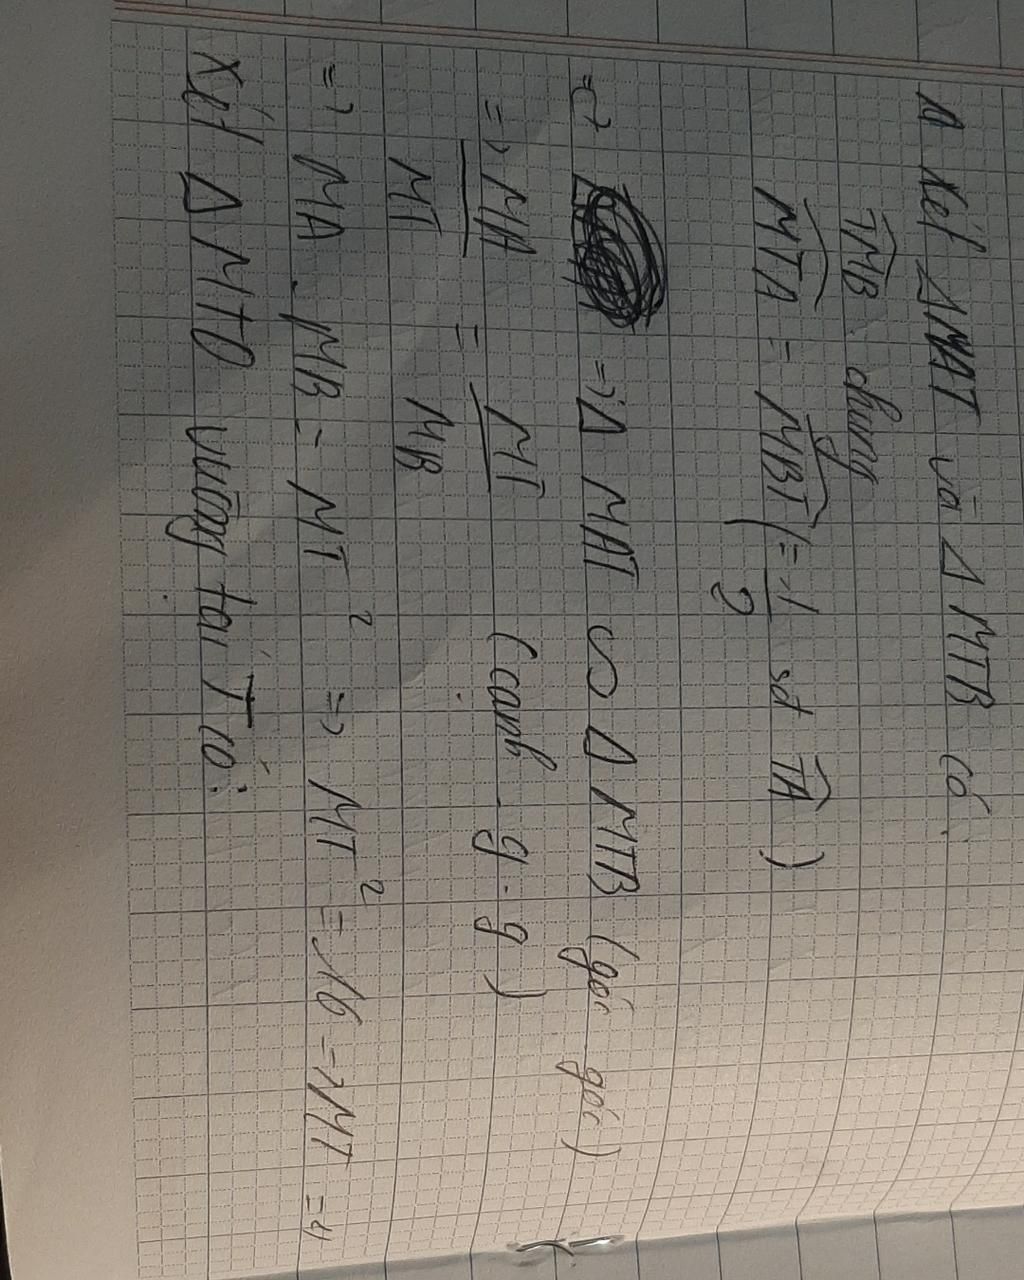 Xét ΔMAT và ΔMTB có.
TMB chung
MTA = MBT (= 1/2 sđ TA)
=> => Δ MAT ∽ Δ MTB (góc góc)
=> MA/MT = MT/MB (cạnh g.g)
=> MA . MB = MT² => MT² = 16 => MT = 4
Xét Δ MTO vuông tại T có: